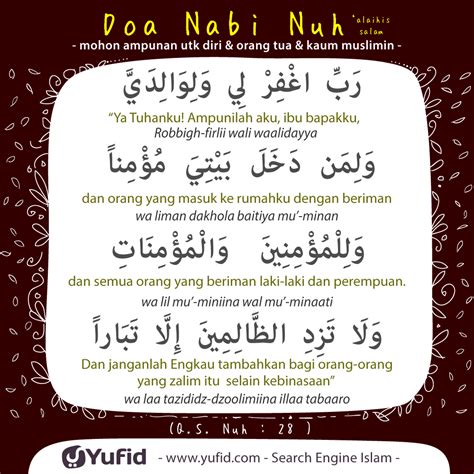 Doa Nabi Nuh 'alaihis salam
- mohon ampunan utk diri & orang tua & kaum muslimin -
رَبِّ اغْفِرْ لِي وَلِوَالِدَيَّ
“Ya Tuhanku! Ampunilah aku, ibu bapakku,
Robbigh-firlii wali waalidayya
وَلِمَن دَخَلَ بَيْتِيَ مُؤْمِناً
dan orang yang masuk ke rumahku dengan beriman
wa liman dakhola baitiya mu’-minan
وَلِلْمُؤْمِنِينَ وَالْمُؤْمِنَاتِ
dan semua orang yang beriman laki-laki dan perempuan.
wa lil mu’-miniina wal mu’-minaati
وَلَا تَزِدِ الظَّالِمِينَ إِلَّا تَبَاراً
Dan janganlah Engkau tambahkan bagi orang-orang
yang zalim itu selain kebinasaan”
wa laa tazididz-dzoolimiina illaa tabaaro
(Q.S. Nuh : 28 )
Yufid - www.yufid.com - Search Engine Islam -